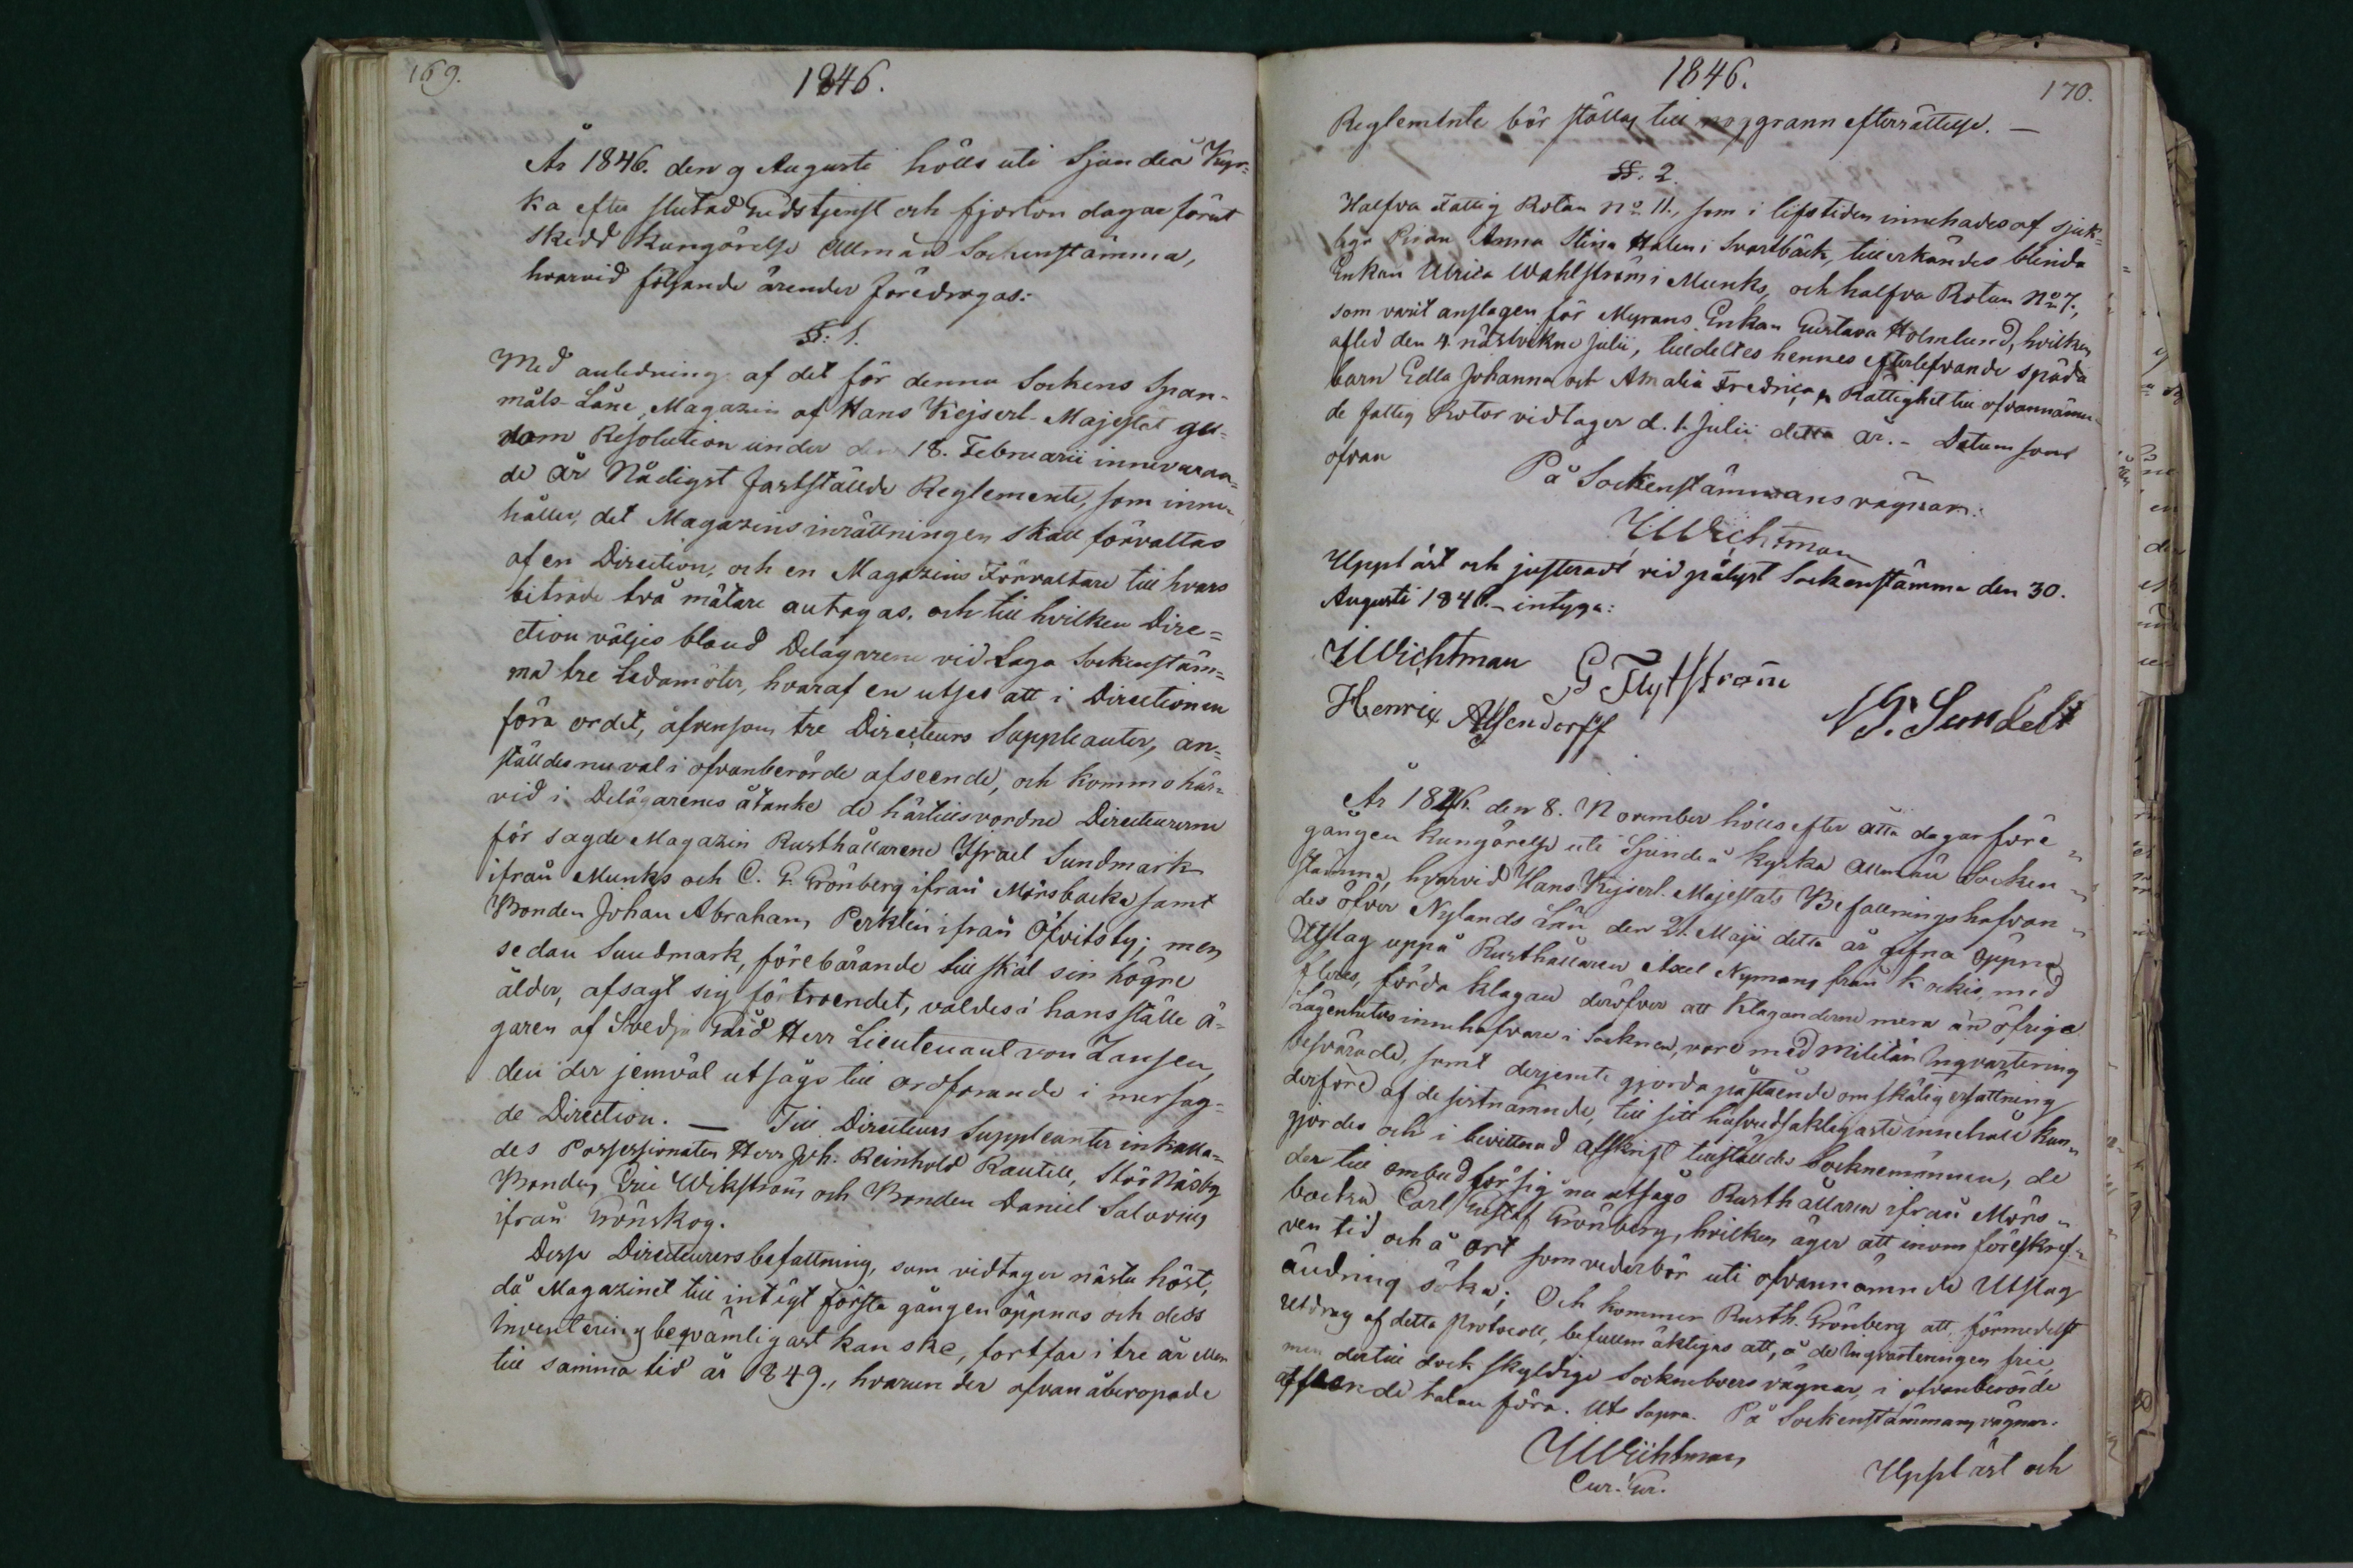 169.
1846.
År 1846. den 9 Augusti hölls uti Sjundeå Kyr=
ka efter slutad Gudstjenst och fjorton dagar förut
skedd kungörelse Allmän Sockenstämma,
hvarvid följande ärender föredrogos:
§. 1.
Med anledning af det för denna Sockens Span-
måls-Låne Magazin af Hans Kejserl. Majestät ge-
nom Resolution under den 18. Februarii innevaran-
de år Nådigst fastställde Reglemente, som inne-
håller, det Magazins inrättningen skall förvaltas
af en Direction, och en Magazins Förvaltare till hvars
biträde två mätare antagas, och till hvilken Dire=
ction väljes bland Delägarene vid Laga Sockenstäm=
ma tre Ledamöter, hvaraf en utses att i Directionen
föra ordet, äfvensom tre Directeurs Suppleanter, an=
ställdes nu val i ofvanberörde afseende, och kommo här=
vid i Delägarenes åtanke de härtillsvordne Directeurerne
för sagde Magazin Rusthållarene Israel Sundmark
ifrån Munks och C. G. Grönberg ifrån Mörsbacka samt
Bonden Johan Abraham Perklin ifrån Öfvitsby; men
sedan Sundmark, förebärande till skäl sin högre
ålder, afsagt sig förtroendet, valdes i hans ställe ä-
garen af Svedja Gård Herr Lieutenant von Zansen,
den der jemväl utsågs till ordförande i mersag=
de Direction. — Till Directeurs Suppleanter inkalla=
des Possessionaten Herr Joh. Reinhold Rautell, Stor Näsby
Bonden Eric Wikström och Bonden Daniel Salovius
ifrån Grönskog.
Desse Directeurers befattning, som vidtager nästa höst,
då Magazinet till intägt första gången öppnas och dess
Inventering beqvämligast kan ske, fortfar i tre år eller
till samma tid år 1849., hvarunder ofvan åberopade
1846.
170.
Reglemente bör ställas till noggrann efterrättelse. —
§§. 2.
Halfva Fattig Rotan No 11., som i lifstiden innehades af sjuk=
liga Pigan Anna Stina Halen i Svartbäck, tillerkändes blinda
Enkan Ulrica Wahlström i Munks, och halfva Rotan No 7.,
som varit anslagen för Myrans Enkan Gustava Holmlund, hvilken
afled den 4. nästvekne Julii, tilldeltes hennes efterlefvande späda
barn Edla Johanna och Amalia Fredrica. Rättighet till ofvannämn-
de fattig Rotor vidtager d. 1. Julii detta år. - Datum som
ofvan
På Sockenstämmans vägnar:
Wichtman
Uppläst och justeradt vid pålyst Sockenstämma den 30.
Augusti 1846. - intyga:
Wichtman G Flytström
Henric Alsendorff N G. Sundell
År 1846. den 8. November hölls efter åtta dagar före=
gången kungörelse uti Sjundeå kyrka Allmän Socken=
stämma, hvarvid Hans Kejserl. Majestäts Befallningshafvan=
des öfver Nylands Län den 21. Maji detta år gifna öppna
Utslag uppå Rusthållaren Axel Nymans från Kockis, med
fleres, förda klagan deröfver att Klaganderne mera än öfriga
Lägenhets innehafvare i Socknen, vore med Militär Inqvartering
besvärade, samt derjemte gjorda påstående om skälig ersättning
derföre af de sistnämnde, till sitt hufvudsakligaste innehåll kun=
gjordes och i bevittnad afskrift tillställdes Socknemännen, de
der till ombud för sig nu utsågo Rusthållaren ifrån Mörs=
backa Carl Gustaf Grönberg, hvilken äger att inom föreskref=
ven tid och å ort som vederbör uti ofvannämnde Utslag
ändring söka; Och kommer Rusth. Grönberg att, förmedelst
Utdrag af detta Protocoll, befullmäktigas att, å de Inqvarteringen frie,
men dertill dock skyldige Sockneboers vägnar, i ofvanberörde
afseende talan föra. Ut Supra. På Sockenstämmans vägnar.
Wichtman
Uppläst och